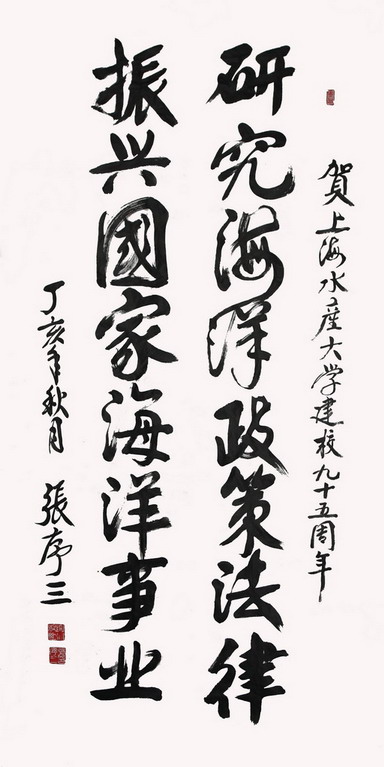 賀上海水產大学建校九十五周年
研究海洋政策法律
振兴國家海洋事业
丁亥年秋月 張序三